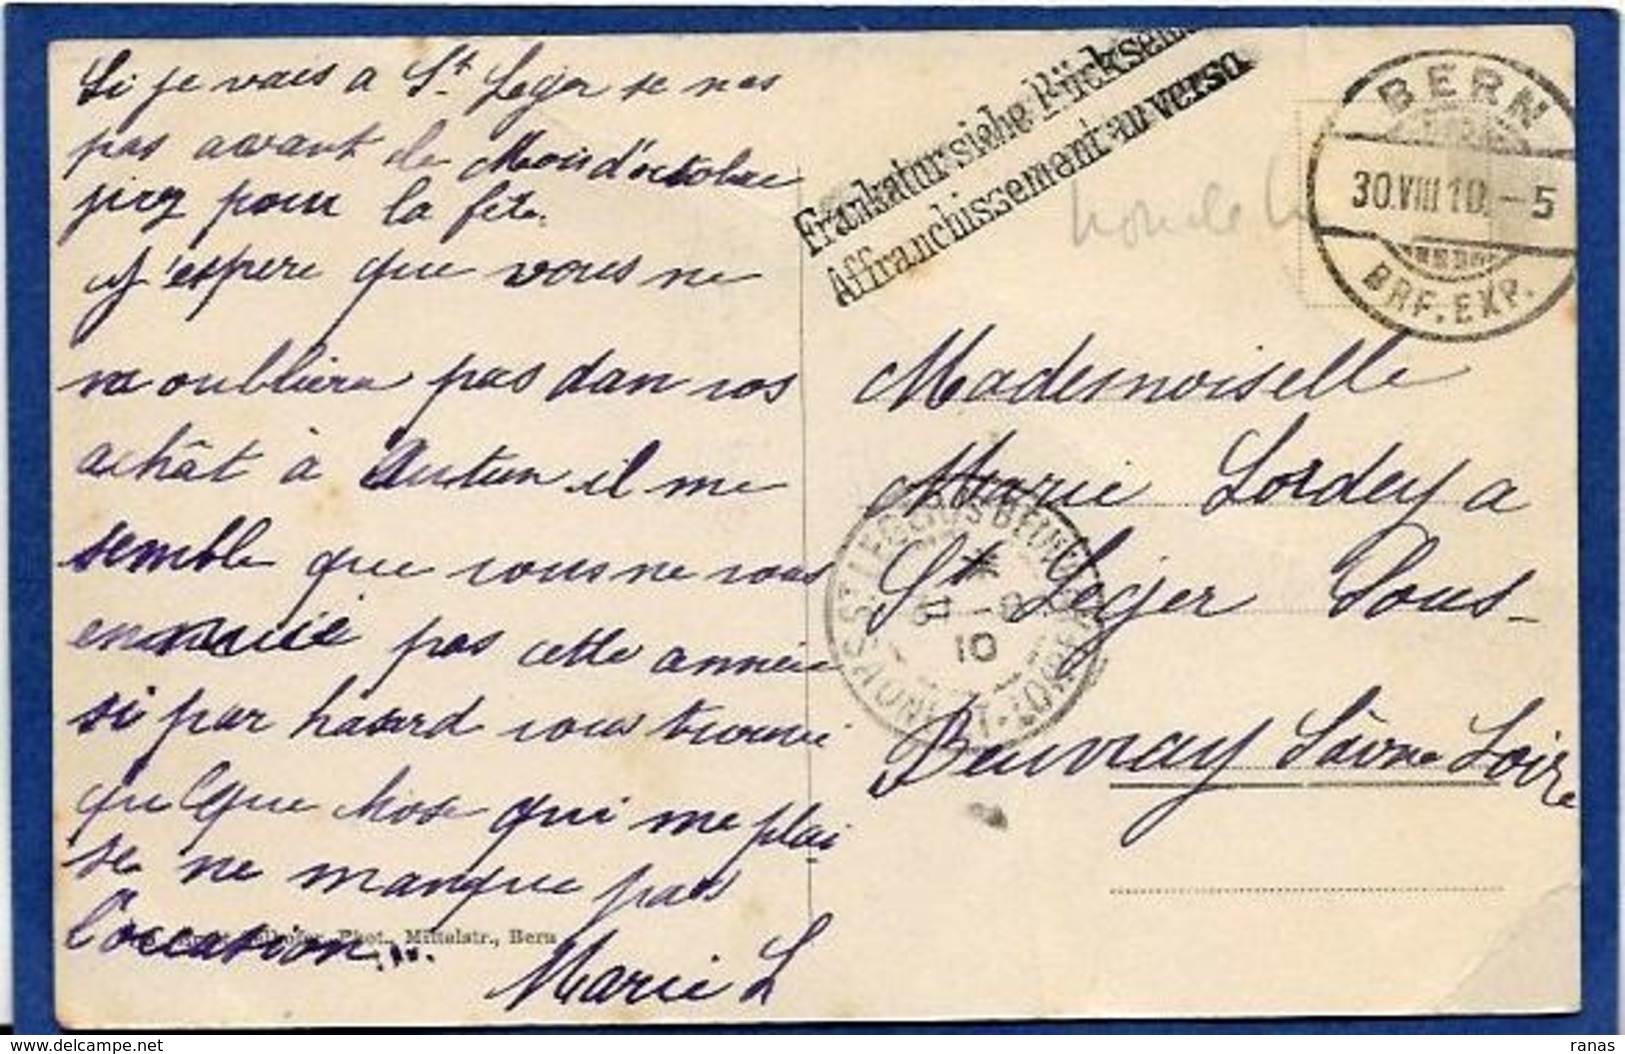 Si je vais a St Leger se nes
pas avant le Mois d'octobre
jirez pour la fête.
J'espere que vous ne
ma oublierez pas dan vos
achât à Autun il me
semble que vous ne vous
ennuié pas cette année
si par hasard vous trouvé
quelque chose qui me plai
se ne manque pas
l'occasion...
Marie L
Phot., Mittelstr., Bern
Frankatur siehe Rückseit
Affranchissement au verso
BERN
30.VIII 10.-5
BRF.EXP.
Mademoiselle
Marie Lordey a
St Leger Sous-
Beuvray Sâone Loire
ST LEGER SOUS BEUVRAY
31 -8
10
SAONE-ET-LOIRE
delcampe.net
ranas